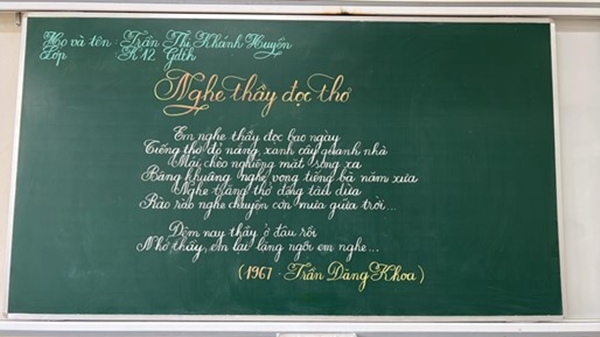 Họ và tên : Trần Thị Khánh Huyền
Lớp K12 Gdth
Nghe thầy đọc thơ
Em nghe thầy đọc bao ngày
Tiếng thơ đỏ nắng, xanh cây quanh nhà
Mái chèo nghiêng mặt sông xa
Bâng khuâng nghe vọng tiếng bà năm xưa
Nghe trăng thở động tàu dừa
Rào rào nghe chuyển cơn mưa giữa trời...
Đêm nay thầy ở đâu rồi
Nhớ thầy, em lại lặng ngồi em nghe...
(1967 - Trần Đăng Khoa)